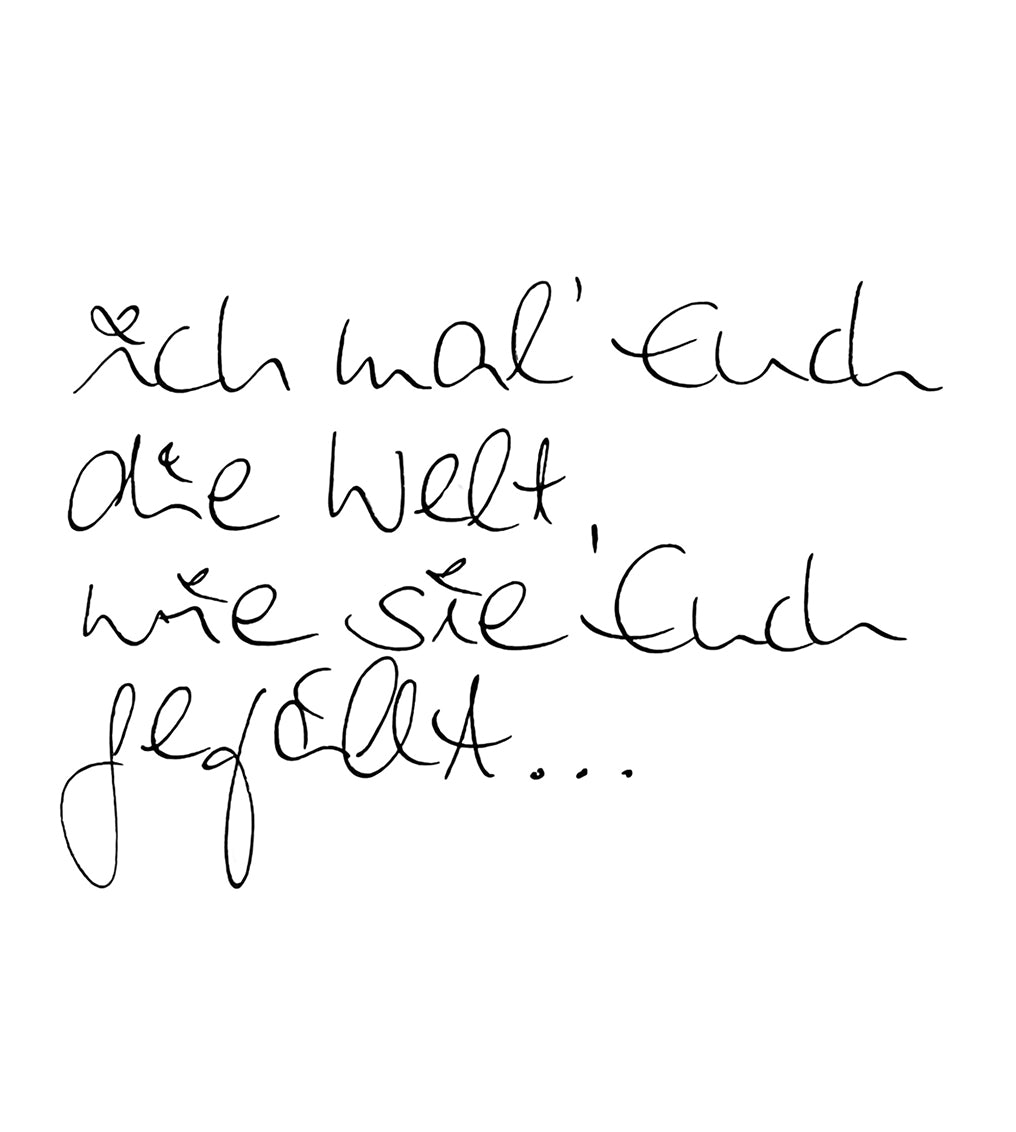 ich mal' Euch
die Welt,
wie sie Euch
gefällt...